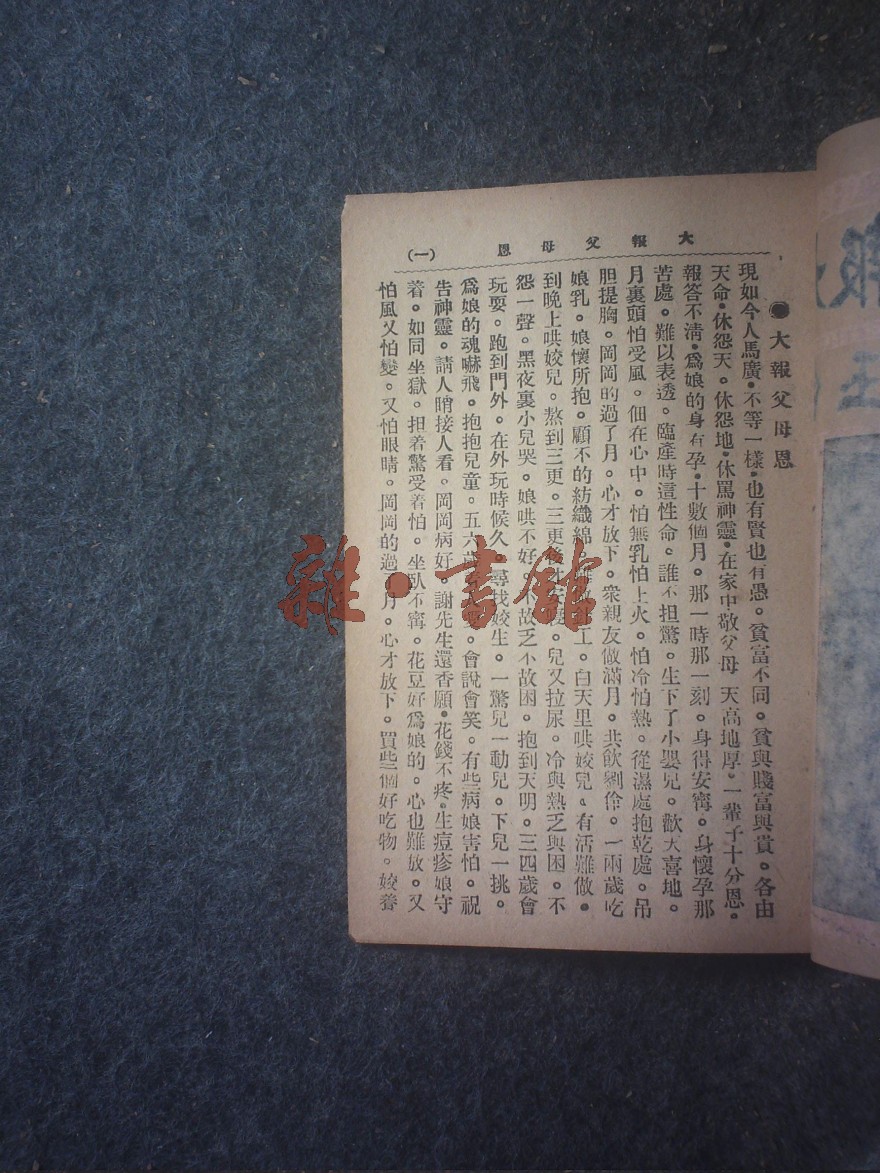 大報父母恩 (一)
●大報父母恩
現如今人馬廣。不等一樣。也有賢也有愚。貧富不同。貧與賤富與貴。各由
天命。休怨天。休怨地。休罵神靈。在家中敬父母 天高地厚。一輩子十分恩。
報答不淸。爲娘的身有孕。十數個月。那一時那一刻。身得安寗。身懷孕那
苦處。難以表透。臨產時這性命。誰不担驚。生下了小嬰兒。歡天喜地。
月裏頭怕受風。佃在心中。怕無乳怕上火。怕冷怕熱。從濕處抱乾處。吊
胆提胸。岡岡的過了月。心才放下。衆親友做滿月。共飲劉伶。一兩歲吃
娘乳。娘懷所抱。顧不的紡織綿 工。白天里哄姣兒。有活難做。
到晚上哄姣兒。熬到三更。三更後 。兒又拉尿。冷與熱乏與困。不
怨一聲。黑夜裏小兒哭。娘哄不好。 故乏不故困。抱到天明。三四歲會
玩耍。跑到門外。在外玩時候久。尋找姣生。一驚兒一動兒。下兒一挑。
爲娘的魂嚇飛。抱抱兒童。五六歲 會說會笑。有些病娘害怕。祝
告神靈。請人哨接人看。岡岡病好。謝先生還香願。花錢不疼。生痘疹娘守
着。如同坐獄。担着驚受着怕。坐臥不寗。花豆好爲娘的。心也難放。又
怕風又怕變。又怕眼睛。岡岡的過 月。心才放下。買些個好吃物。姣養
報
雜·書館